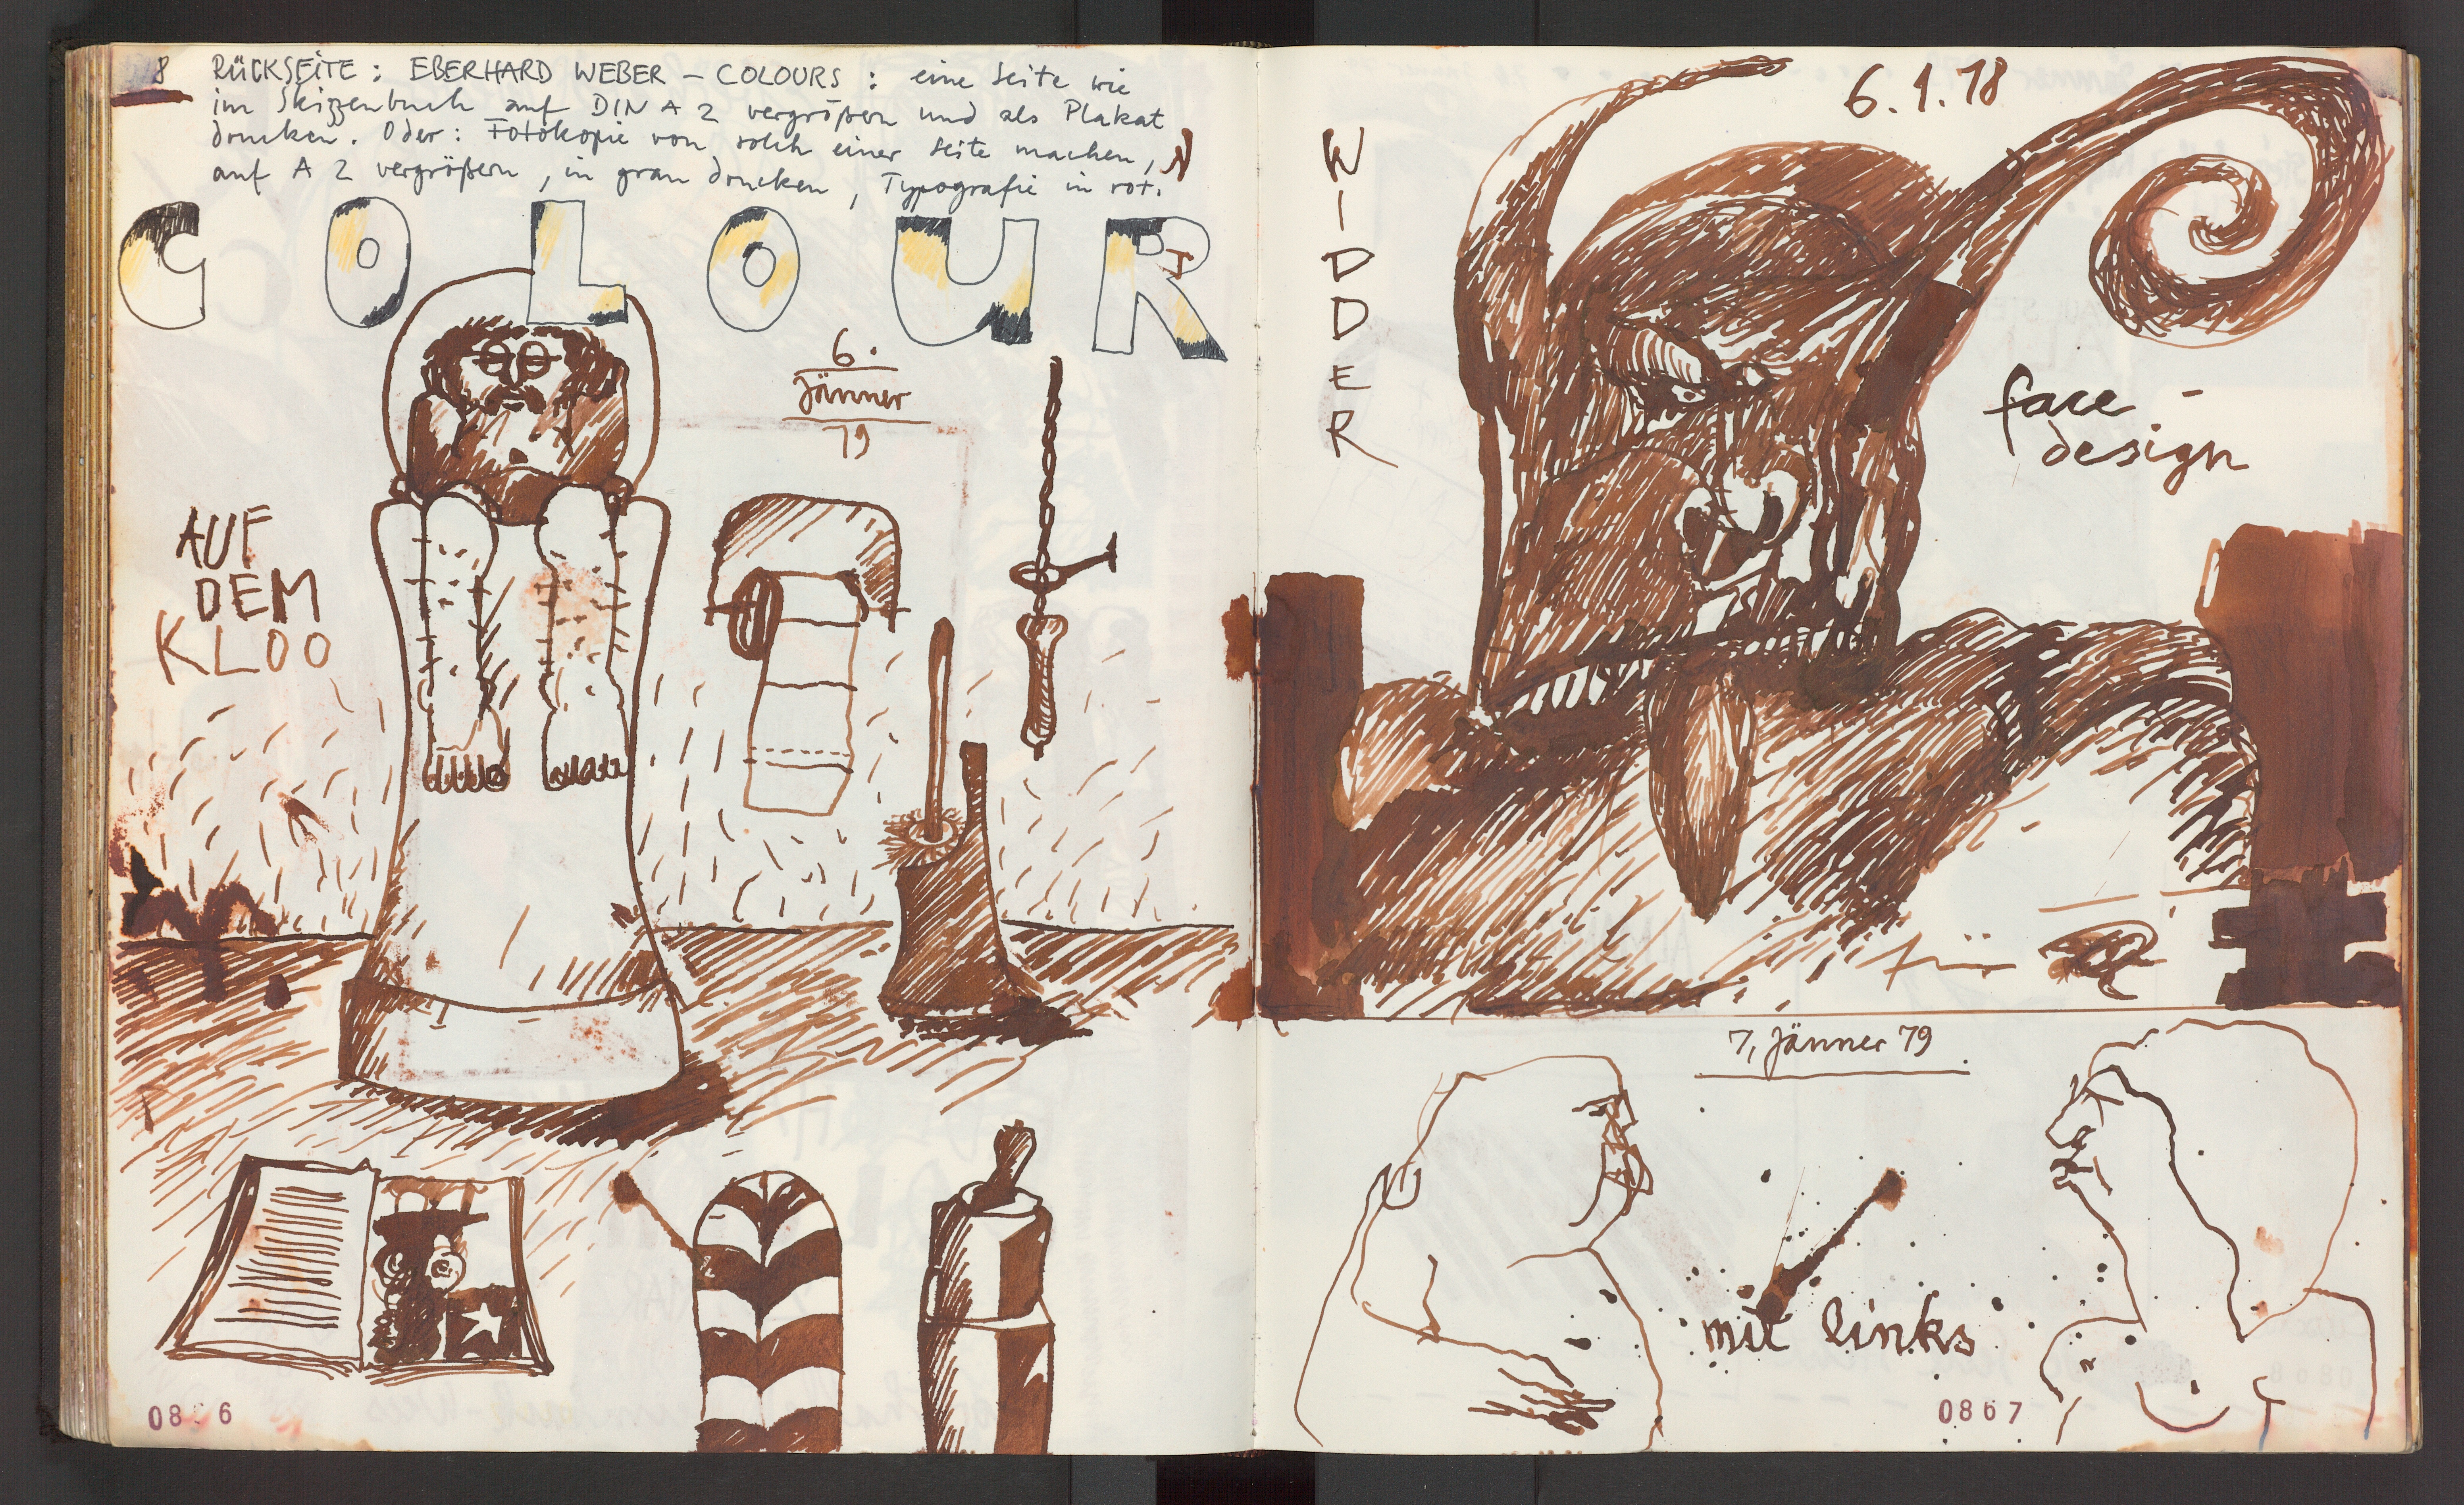 8 RÜCKSEITE: EBERHARD WEBER – COLOURS: eine Seite wie
im Skizzenbuch auf DIN A 2 vergrößern und als Plakat
drucken. Oder: Fotokopie von solch einer Seite machen,
auf A 2 vergrößern, in grau drucken, Typografie in rot.
COLOUR
6.
Jänner
79
AUF
DEM
KLOO
0866
6.1.18
WIDDER
face -
design
für
7. Jänner 79
mit links
0867